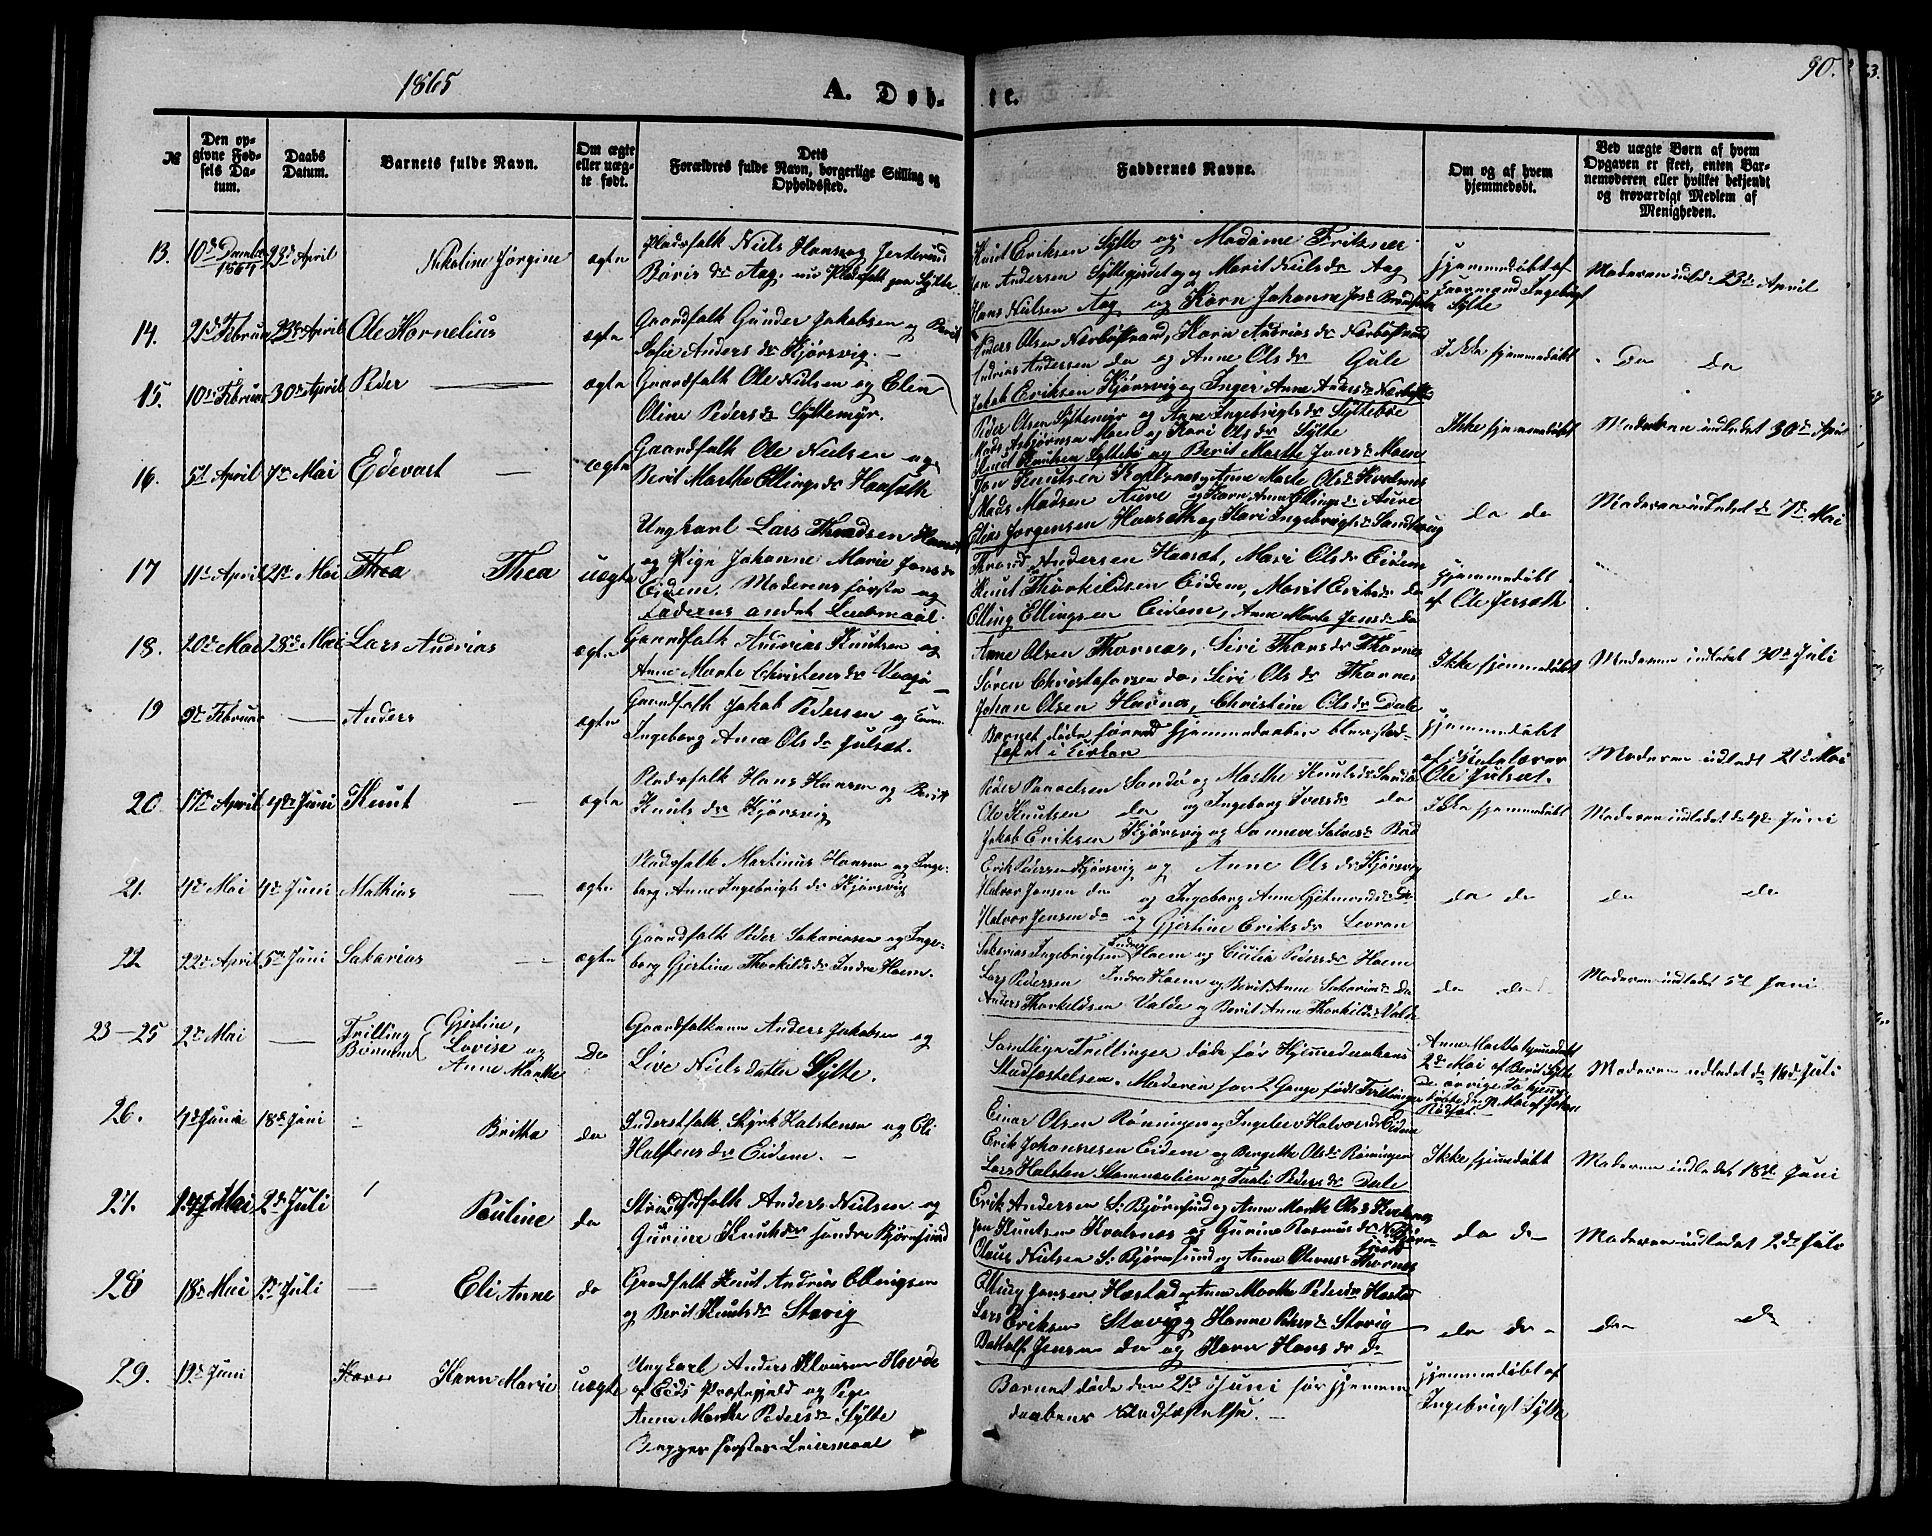 1865
A. Døb-
te.
90.
№
Den op-
givne Fød-
sels Da-
tum.
Daabs
Datum.
Barnets fulde Navn.
Om ægte
eller uæg-
te født.
Dets
Forældres fulde Navn, borgerlige Stilling og
Opholdssted.
Faddernes Navne.
Om og af hvem
hjemmedøbt.
Ved uægte Børn af hvem
Opgaven er skeet, enten Bar-
nemoderen eller hvilket bekjendt
og troværdigt Medlem af
Menigheden.
13. 23de April Nikoline Jørgine ægte
Knut Eriksen Sylte og Madame Fritzner
Jon Andersen Syltegjerdet og Marit Nielsdr Aag
Hans Nielsen Aag og Karn Johanne
Hjemmedøbt af
Jormord Ingebrigt
Sylte
Moderen indled 23de April
14. 21de Februar 23de April Ole Kornelius ægte
Gaardfolk Gunder Jakobsen og Berit
Sofie Andersdr Kjørsvig. —
Anders Olsen Nærbøstrand, Karn Andriasdr Nærbøstrand
Andrias Andersen da og Anne Olsdr Gule
Jakob Eriksen Kjørsvig og Inger Anne Andersdr
Ikke hjemmedøbt
Da da
15. 10de Februar 30de April Peder ægte
Gaardfolk Ole Nielsen og Elen
Oline Pedersdr Syltemyr.
Peder Olsen Syltemyr og Anne Ingebrigtsdr Syltebøe
Mads Asbjørnsen Moen og Kari Olsdr Sylte
Knut Knutsen Syltebø og Berit Marthe Jonsdr Moen
Ikke hjemmedøbt
Moderen indledet 30de April
16. 5te April 7de Mai Edevart — ægte
Gaardfolk Ole Nielsen og
Berit Marthe Ellingsdr Haasæth
Jon Knutsen Kvalsnes, Anne Marte Olsdr Kvalsnes
Mads Madsen Aure og Karn Anne Ellingsdr Aure
Elias Jørgensen Haasæth og Kari Ingebrigtsdr Sandvig
da do
Moderen indledet d 7de Mai
17 11te April 21de Mai Thea Thea uægte
Ungkarl Lars Thoresen
og Pige Johanne Marie Jensdr
Eidem. Moderens første og
Faderens andet Leiermaal.
Andersen Haasæt, Mari Olsdr Eidem
Knut Thorkildsen Eidem, Marit Eriksdr do
Elling Ellingsen Eidem, Anne Marte Jensdr do
Hjemmedøbt
af Ole Jersæth
18. 20de Mai 28de Mai Lars Andrias ægte
Gaardfolk Andrias Knutsen og
Anne Marte Christensdr Vaagø
Arne Olsen Thornes, Siri Thoresdr Thornes
Søren Christofersen do, Siri Olsdr Thornes
Johan Olsen Havnes, Christine Olsdr Dale
Ikke hjemmedøbt
Moderen indledet 30de Juli
19 9de Februar — Anders ægte
Gaardfolk Jakob Pedersen og
Ingeborg Anne Olsdr Julset.
Barnet døde førend Hjemmedaaben blev stad-
fæstet i Kirken
Hjemmedøbt
af Skolelærer
Ole Julset.
Moderen indledt 21de Mai
20. 17de April 4de Juni Knut — ægte
Pladsfolk Hans Hansen og Berit
Knutsdr Kjørsvig
Ole Knutsen do og Ingeborg Iversdr do
Jakob Eriksen Kjørsvig og
Ikke hjemmedøbt
Moderen indledet d 4de Juni
21. 4de Mai 4de Juni Mathias — ægte
Pladsfolk Martinus Hansen og Inge-
borg Anne Ingebrigtsdr Kjørsvig
Erik Pedersen Kjørsvig og Anne Olsdr Kjørsvig
Halvor Jensen do og Ingeborg Anne Gjetmundsdr do
Halvor Jensen do og Gjertine Eriksdr Levran
da do
do do
22. 22de April 5te Juni Sakarias — ægte
Gaardfolk Peder Sakariasen og Inge-
borg Gjertine Thorkildsdr Indre Harm.
Sakarias Ingebrigtsen Indre Harm og Cicilia Pedersdr Harm
Lars Pedersen Indre Harm og Berit Anne Sakariasdr do
Anders Thorkildsen Valde og Berit Anne Thorkildsdr Valde
do do
Moderen indledet 5te Juni
23–25 2de Mai — Trilling
Børnene Gjertine,
Lovise og
Anne Marthe
Do
Gaardfolkene Anders Jakobsen og
Live Nielsdatter Sylte.
Samtlige Trillinger døde før Hjemmedaabens
Stadfæstelse. Moderen har 2 Gange født Trillinger
Anne Marthe hjemmedøbt
2de Mai af Berit Sylte
Moderen indledet d 18de Juli
26. 4de Juni 18de Juni — Britha do
Inderstfolk Styrk Halstensen og Eli
Halstensdr Eidem. —
Einar Olsen Røningen og Ingeborg Halvorsdr Eidem
Erik Johannesen Eidem og Bergithe Olsdr Røningen
Lars Halsten Stomnæslien og Pedersdr Dale
Ikke hjemmedøbt
Moderen indledet 18de Juni
27. Mai 2de Juli Pauline do
Strandsidfolk Anders Nielsen og
Gurine Knutsdr søndre Bjørnsund
Erik Andersen S. Bjørnsund og Anne Marthe Olsdr
Jon Knutsen Kvalsnes og Gurine Rasmusdr
Olaus Nielsen S. Bjørnsund og Anne Thornes
do do
Moderen indledet 2de Juli
28 18de Mai 2de Juli — Eli Anne do
Gaardfolk Knut Andrias Ellingsen
og Berit Knutsdr Stavig
Elling Jensen Harstad og Anne Marthe Pedersdr Harstad
Lars Eriksen Stavig og Hanne Stavig
Jensen do og Karn Hansdr do
do do
do do
29. 19de Juni Karn Karn Marie uægte
Ungkarl Anders Klausen Hovde
af Eids Præstegjeld og Pige
Anne Marthe Pedersdr Sylte
Begges første Leiermaal
Barnet døde den 21de Juni før Hjemme-
daabens Stadfæstelse. —
Hjemmedøbt af
Ingebrigt Sylte